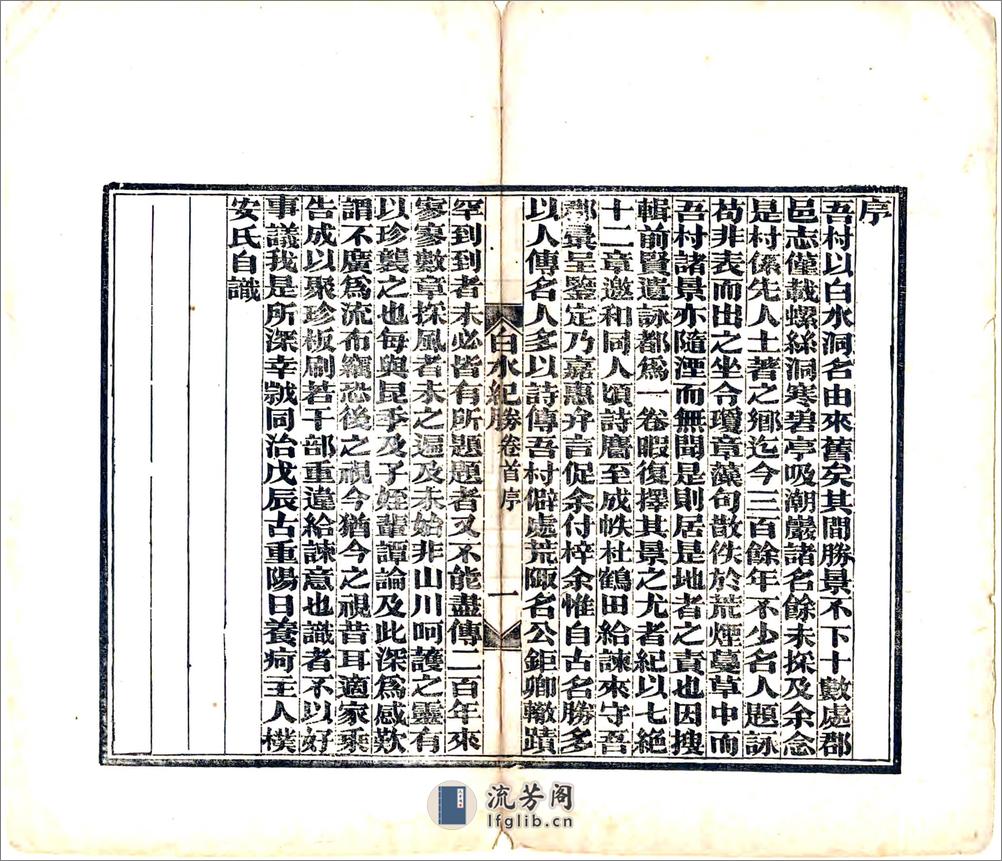 序
吾村以白水洞名由來舊矣其間勝景不下十數處郡
邑志僅載螺絲洞寒碧亭吸潮巖諸名餘未採及余念
是村係先人土著之鄉迄今三百餘年不少名人題詠
苟非表而出之坐令瓊章藻句散佚於荒煙蔓草中而
吾村諸景亦隨湮而無聞是則居是地者之責也因搜
輯前賢遺詠都爲一卷暇復擇其景之尤者紀以七絕
十二章邀和同人頃詩麕至成帙杜鶴田給諫來守吾
郡曇呈鑒定乃嘉惠弁言促余付梓余惟自古名勝多
以人傳名人多以詩傳吾村僻處荒陬名公鉅卿轍蹟
白水紀勝 卷首序 一
罕到到者未必皆有所題題者又不能盡傳二百年來
寥寥數章採風者未之遍及未始非山川呵護之靈有
以珍襲之也每與昆季及子姪輩譚論及此深爲感歎
謂不廣爲流布竊恐後之視今猶今之視昔耳適家乘
告成以聚珍板刷若干部重違給諫意也識者不以好
事議我是所深幸歟同治戊辰古重陽日養疴主人樸
安氏自識
流芳阁
lfglib.cn